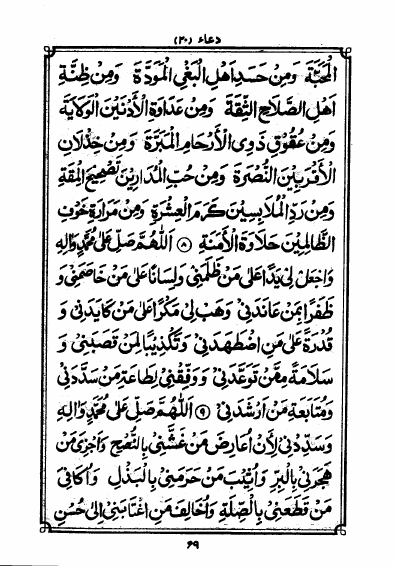 دعاء (٢٠)
الْمَحَبَّةَ وَمِنْ حَسَدِ اَهْلِ الْبَغْيِ الْمَوَدَّةَ وَمِنْ ظِنَّةِ
اَهْلِ الصَّلَاحِ الثِّقَةَ وَمِنْ عَدَاوَةِ الْأَدْنَيْنَ الْوَلَايَةَ
وَمِنْ عُقُوْقِ ذَوِى الْأَرْحَامِ الْمَبَرَّةَ وَمِنْ خِذْلَانِ
الْأَقْرَبِيْنَ النُّصْرَةَ وَمِنْ حُبِّ الْمُدَارِيْنَ تَصْحِيْحَ الْمِقَةِ
وَمِنْ رَدِّ الْمُلَابِسِيْنَ كَرَمَ الْعِشْرَةِ وَمِنْ مَرَارَةِ خَوْفِ
الظَّالِمِيْنَ حَلَاوَةَ الْأَمَنَةِ ⑧ اَللّٰهُمَّ صَلِّ عَلٰى مُحَمَّدٍ وَّاٰلِهٖ
وَاجْعَلْ لِىْ يَدًا عَلٰى مَنْ ظَلَمَنِىْ وَلِسَانًا عَلٰى مَنْ خَاصَمَنِىْ وَ
ظَفَرًا بِمَنْ عَانَدَنِىْ وَهَبْ لِىْ مَكْرًا عَلٰى مَنْ كَايَدَنِىْ وَ
قُدْرَةً عَلٰى مَنِ اضْطَهَدَنِىْ وَتَكْذِيْبًا لِمَنْ قَصَبَنِىْ وَ
سَلَامَةً مِمَّنْ تَوَعَّدَنِىْ وَوَفِّقْنِىْ لِطَاعَةِ مَنْ سَدَّدَنِىْ
وَمُتَابَعَةِ مَنْ اَرْشَدَنِىْ ⑨ اَللّٰهُمَّ صَلِّ عَلٰى مُحَمَّدٍ وَّاٰلِهٖ
وَسَدِّدْنِىْ لِاَنْ اُعَارِضَ مَنْ غَشَّنِىْ بِالنُّصْحِ وَاَجْزِىَ مَنْ
هَجَرَنِىْ بِالْبِرِّ وَاُثِيْبَ مَنْ حَرَمَنِىْ بِالْبَذْلِ وَاُكَافِىَ
مَنْ قَطَعَنِىْ بِالصِّلَةِ وَاُخَالِفَ مَنِ اغْتَابَنِىْ اِلٰى حُسْنِ
٦٩